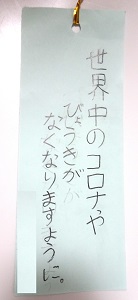 世界中のコロナや
びょうきが
なくなりますように。